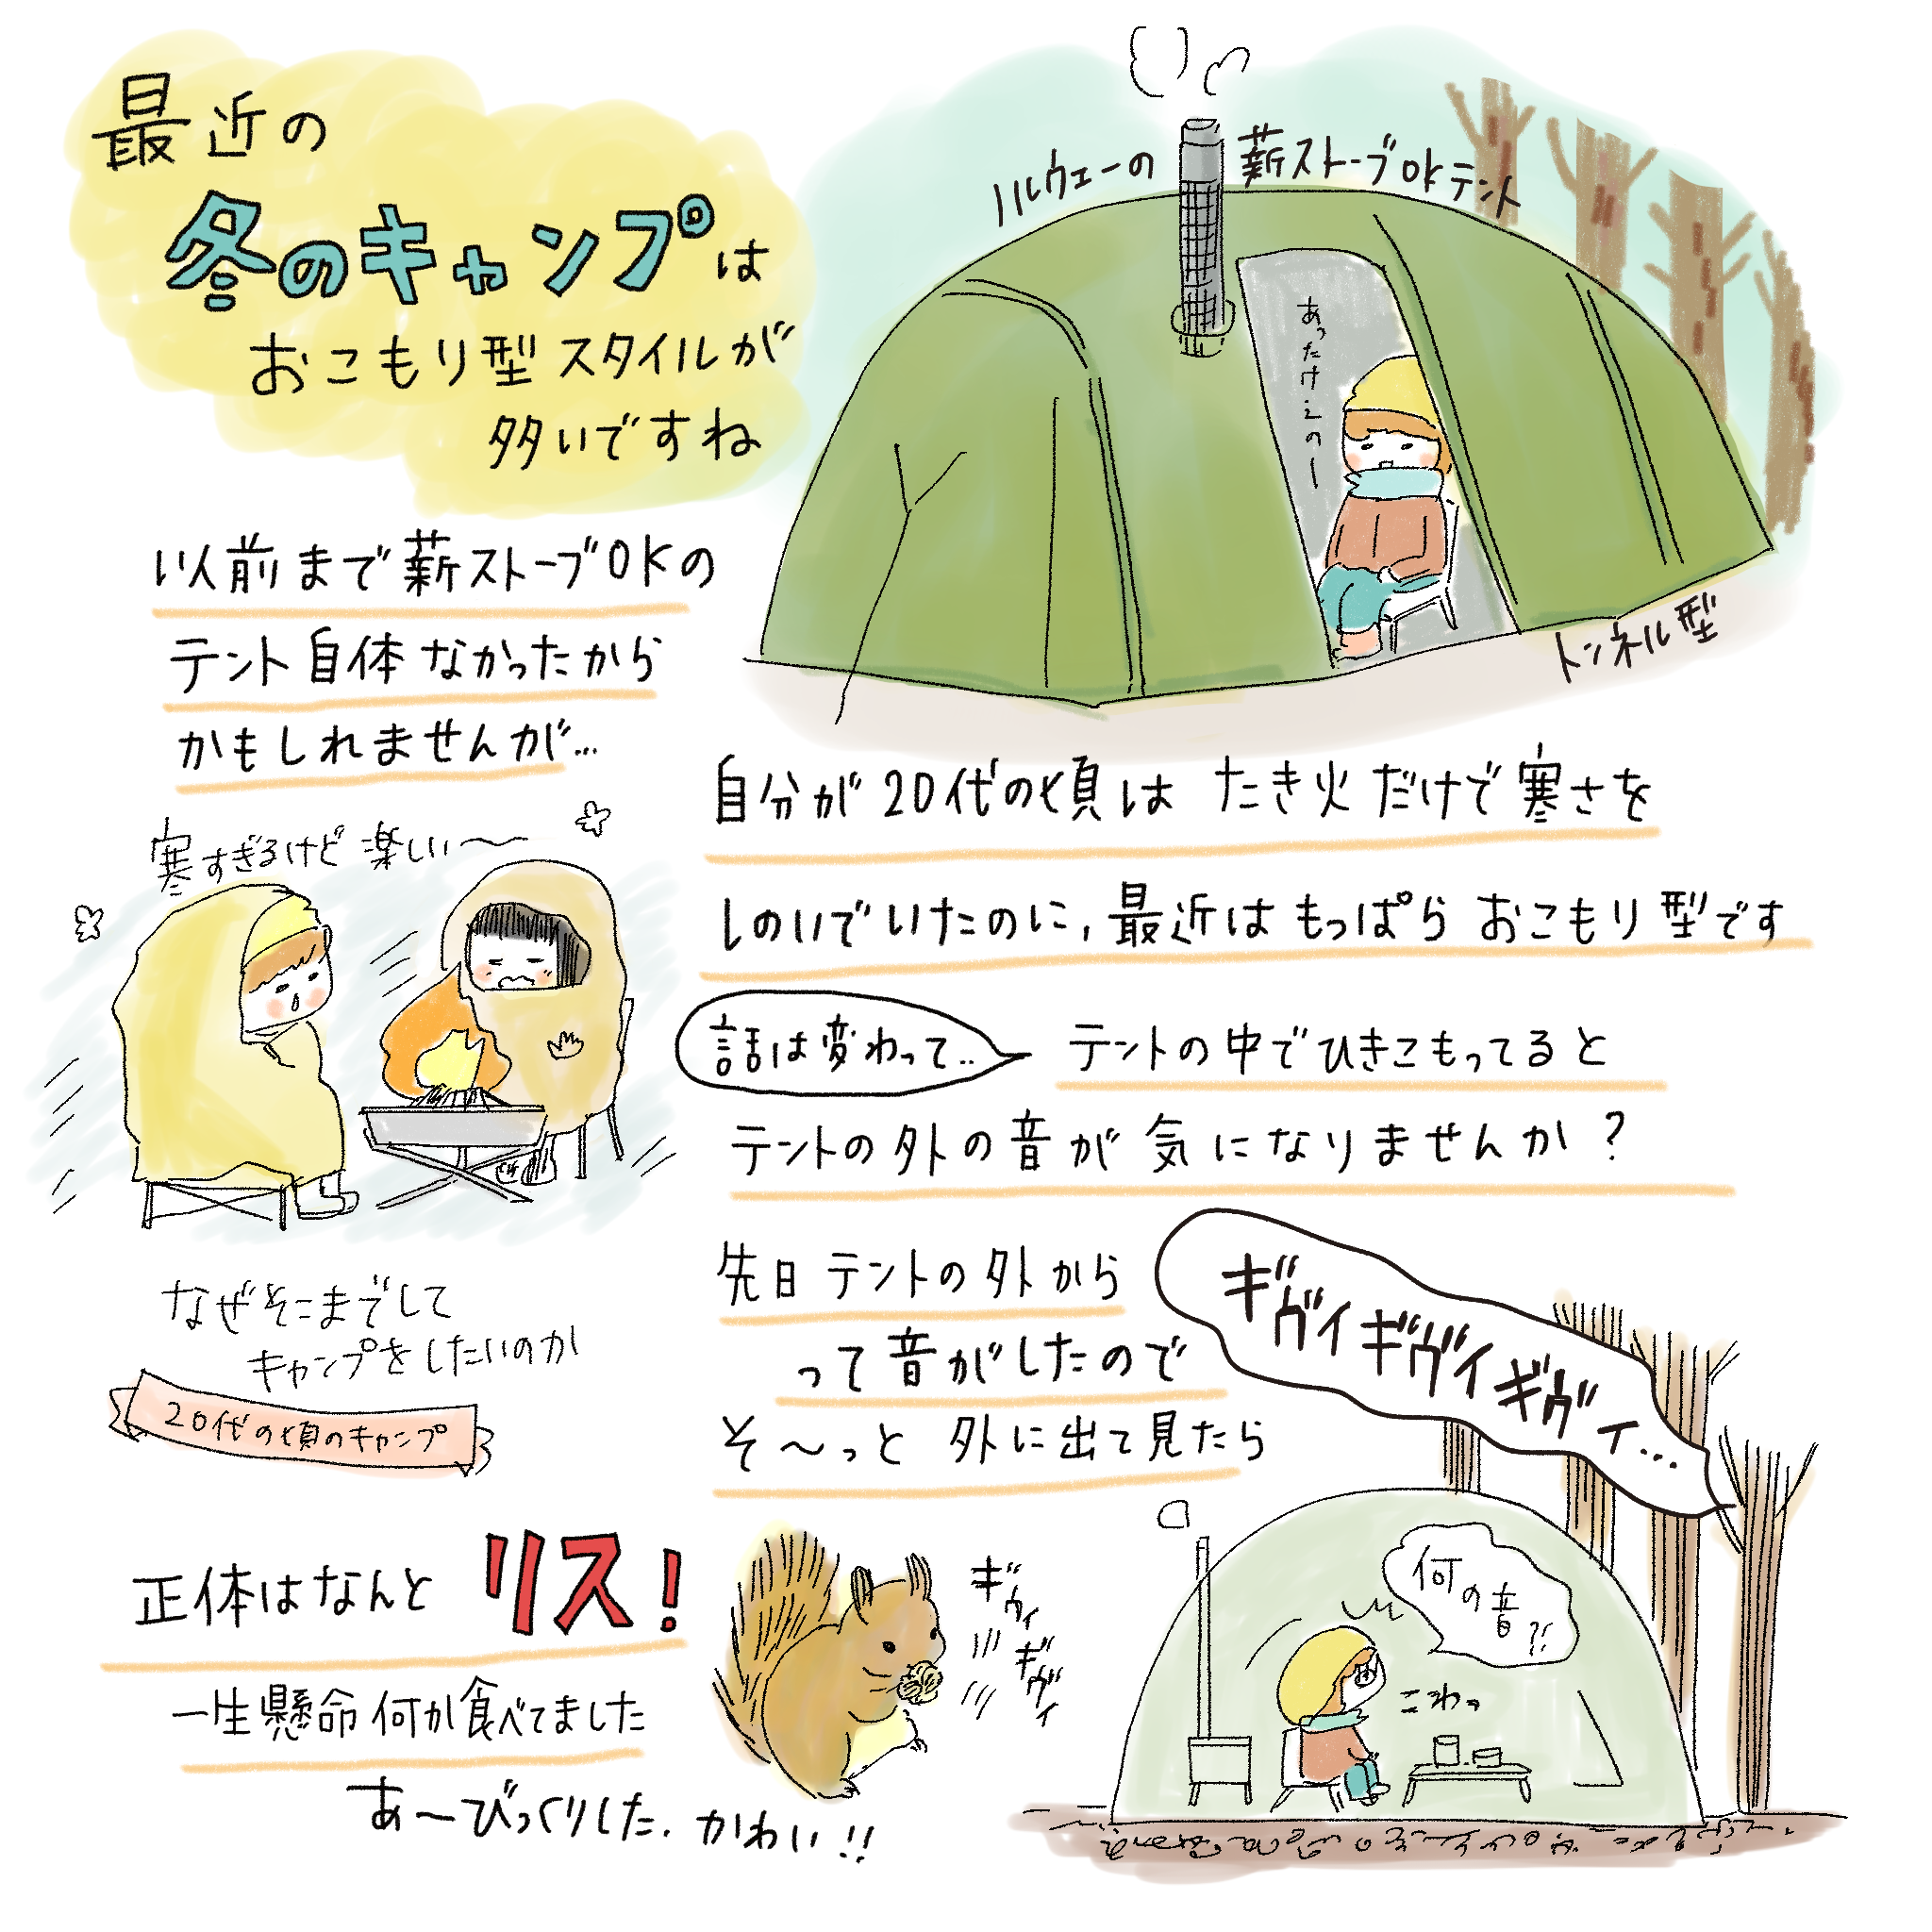 最近の
冬のキャンプは
おこもり型スタイルが
多いですね
ノルウェーの薪ストーブOKテント
あったけぇのー
トンネル型
以前まで薪ストーブOKの
テント自体なかったから
かもしれませんが…
寒すぎるけど楽しい〜
なぜそこまでして
キャンプをしたいのか
20代の頃のキャンプ
自分が20代の頃はたき火だけで寒さを
しのいでいたのに、最近はもっぱらおこもり型です
話は変わって..
テントの中でひきこもってると
テントの外の音が気になりませんか?
先日テントの外から
ギヴィギヴィギヴィ…
って音がしたので
そ〜っと外に出て見たら
何の音?!
こわっ
正体はなんとリス!
一生懸命何か食べてました
ギヴィ
ギヴィ
あ〜びっくりした.かわいい!!